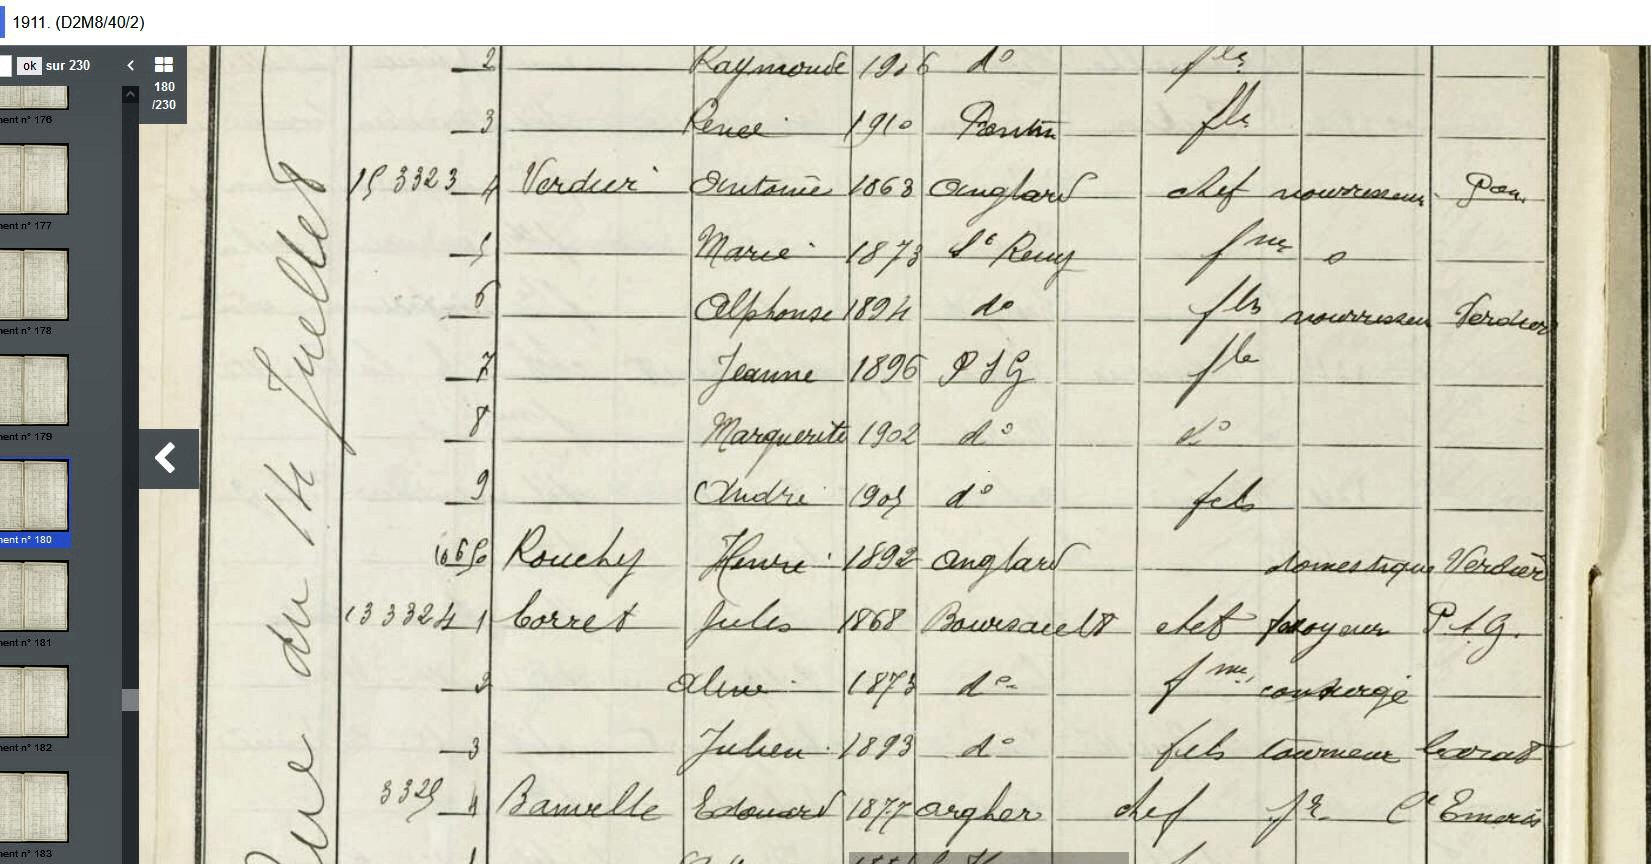 1911. (D2M8/40/2)
ok sur 230
180
/230
ment n° 176
ment n° 177
ment n° 178
ment n° 179
ment n° 180
ment n° 181
ment n° 182
ment n° 183
Rue du 14 Juillet
2 Raymonde 1906 d° fle
3 Renée 1910 Pantin fle
15 3323 4 Verdier Antoine 1863 Anglard chef nourrisseur Pon.
5 Marie 1873 St Remy fme o
6 Alphonse 1894 d° fls nourrisseur Verdier
7 Jeanne 1896 P S G fle
8 Marguerite 1902 d° d°
9 André 1905 d° fils
Rouchy Henri 1892 Anglard domestique Verdier
13 3324 1 Corret Jules 1868 Boursault chef P.S.G.
2 Aline 1873 d° fme concierge
3 Julien 1893 d° fils tourneur
3325 4 Banville Edouard 1877 chef jr